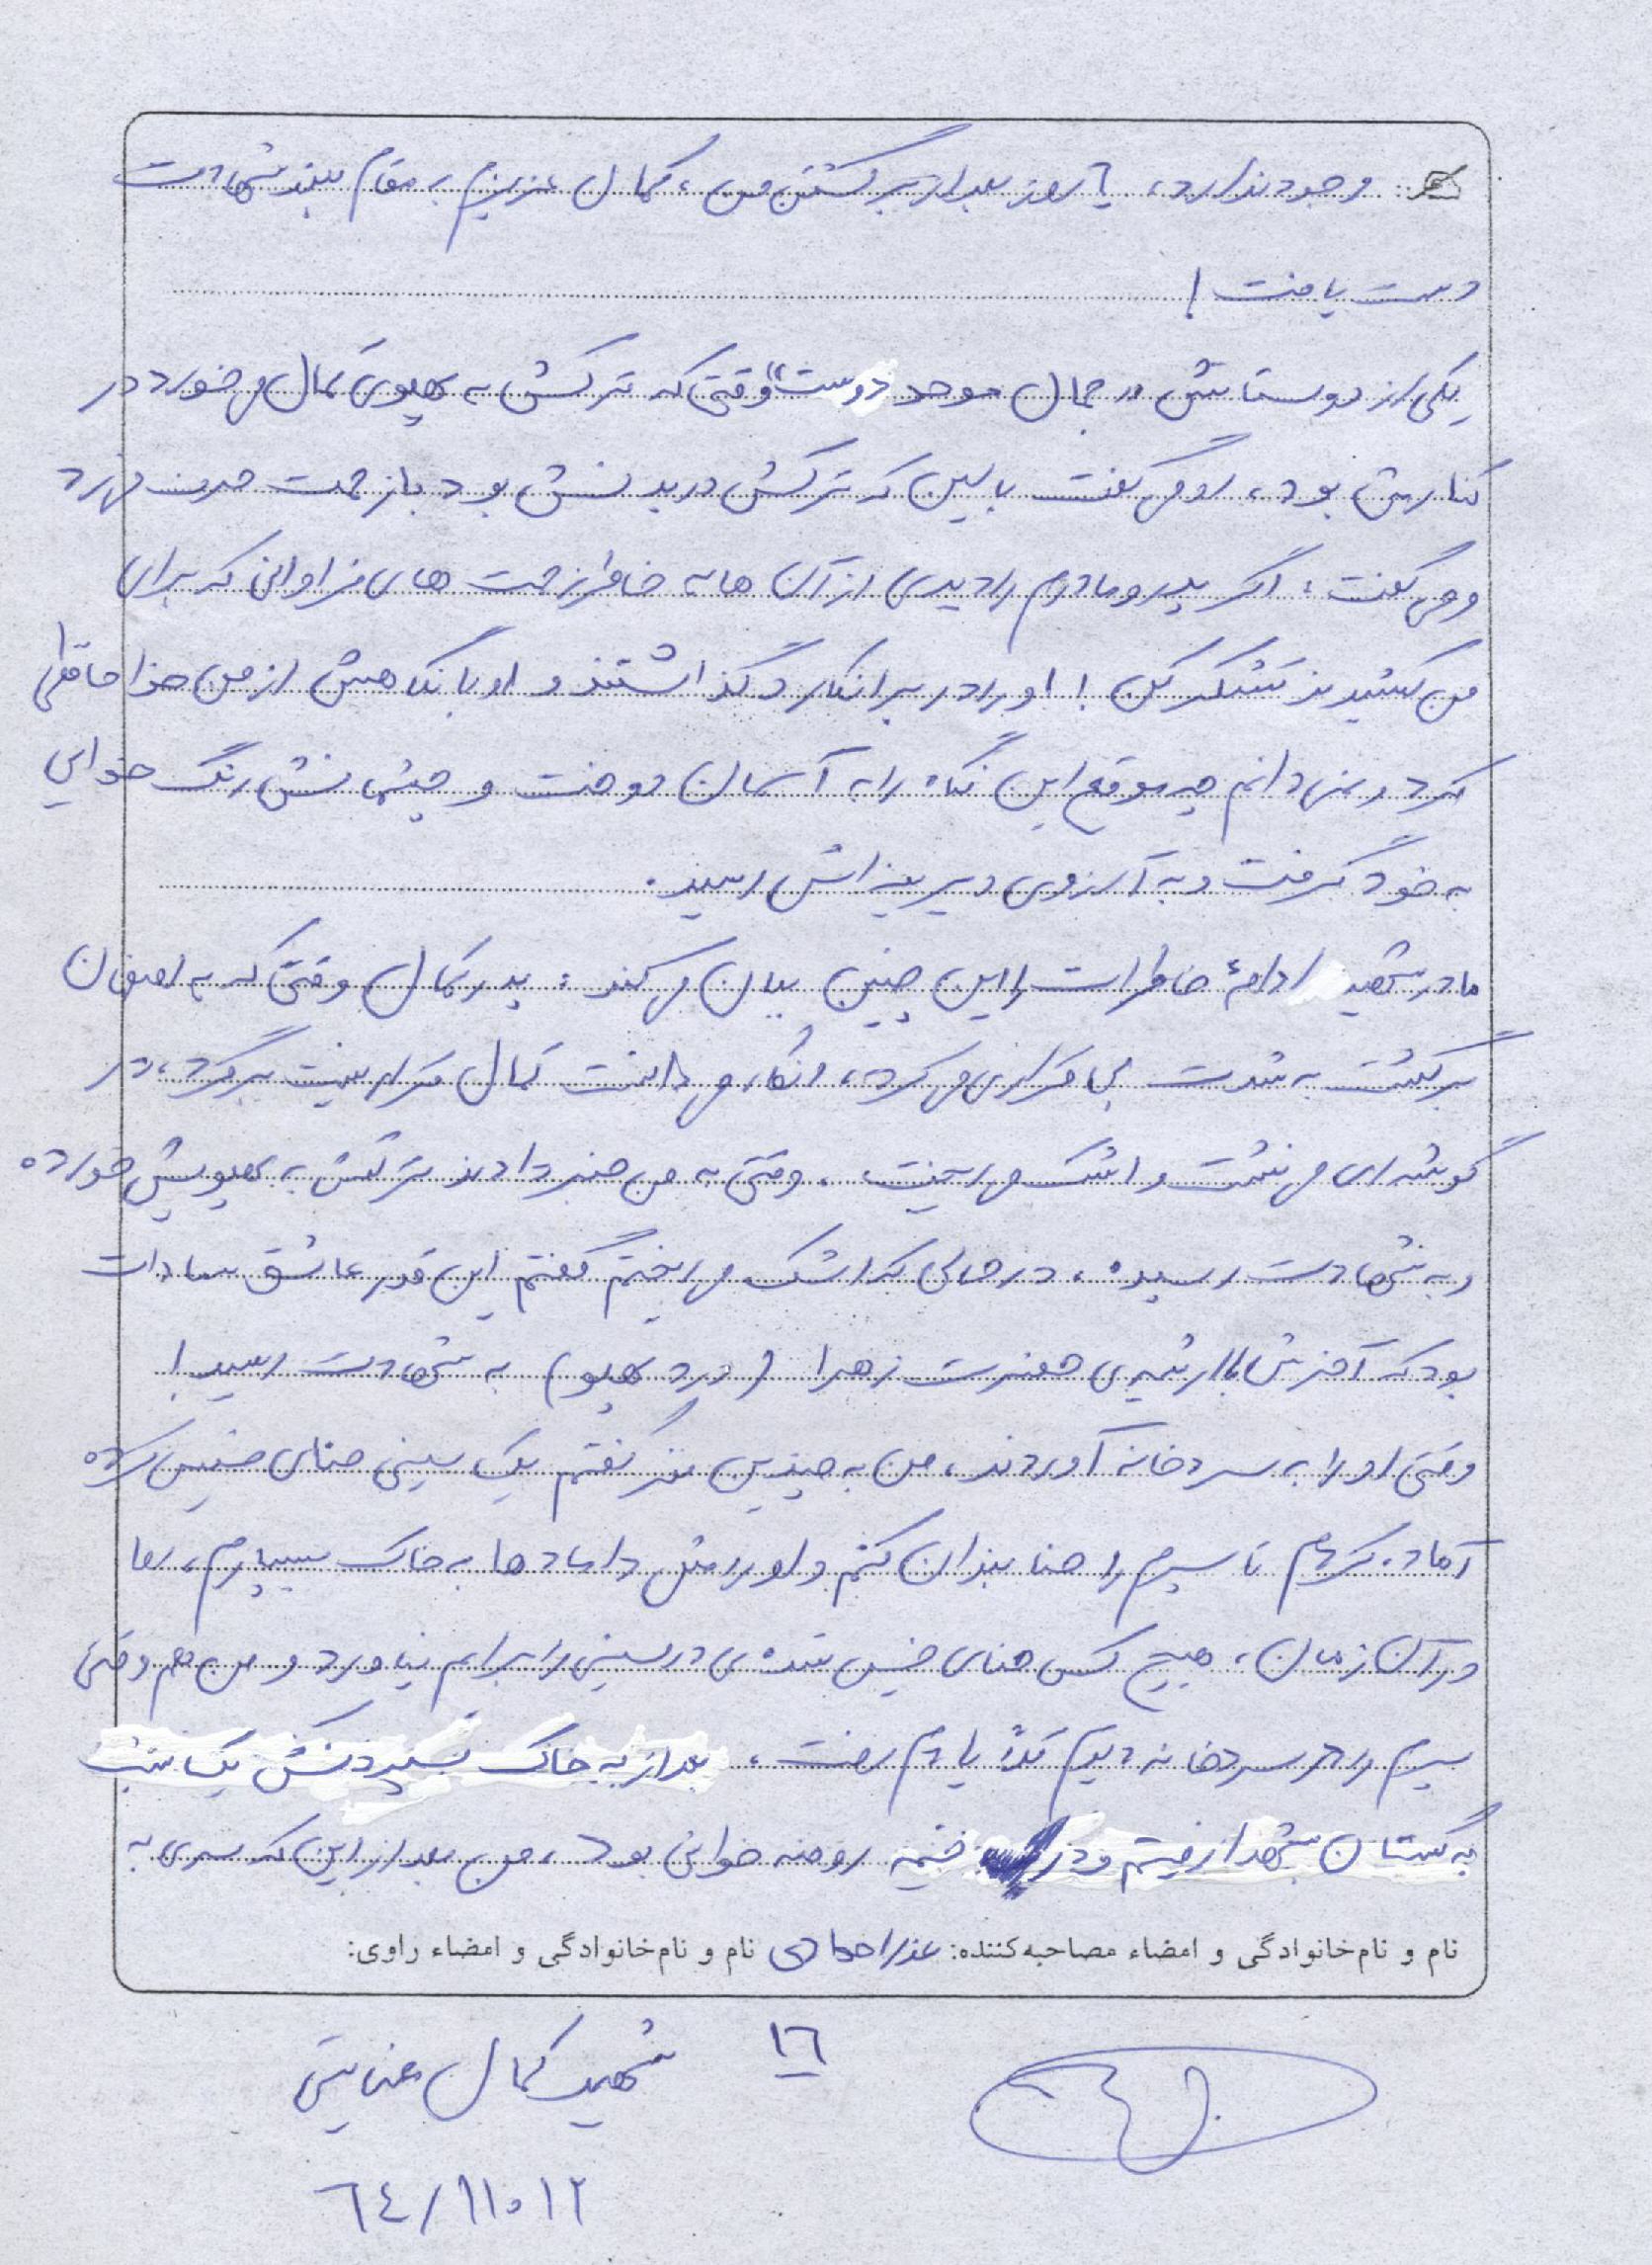 وجود ندارد، ٦ روز بعد از برگشتن من، کمال عزیزم به مقام بلند شهادت
دست یافت!
یکی از دوستانش "جمال موحد دوست" وقتی که ترکش به پهلوی کمال می خورد در
کنارش بود، او می گفت با این که ترکش در بدنش بود باز حمت حرف می زد
و می گفت: اگر پدر و مادرم را دیدی از آن ها به خاطر زحمت های فراوانی که برای
من کشیدند تشکر کن! او را در برانکارد گذاشتند و او با نگاهش از من خداحافظی
کرد و نمی دانم چه موقع این نگاه را به آسمان دوخت و چشمانش رنگ خدایی
به خود گرفت و به آرزوی دیرینه اش رسید.
مادر شهید ادامۀ خاطرات را این چنین بیان می کند: پدر کمال وقتی که به اصفهان
برگشت به شدت بی قراری می کرد، انگار می دانست کمال قرار نیست برگردد، در
گوشه ای می نشست و اشک می ریخت. وقتی به من خبر دادند ترکش به پهلویش خورده
و به شهادت رسیده، در حالی که اشک می ریختم گفتم این قدر عاشق سادات
بود که آخرش با ارثیه ی حضرت زهرا (درد پهلو) به شهادت رسید!
وقتی او را به سردخانه آوردند، من به چندین نفر گفتم یک سینی حنای خیس کرده
آماده کردم تا پسرم را حنا بندان کنم و او را مثل دامادها به خاک بسپارم، اما
در آن زمان، هیچ کس حنای خیس شده ی در سینی را برایم نیاورد و من هم وقتی
پسرم را در سردخانه دیدم کلاً یادم رفت، بعد از به خاک سپردنش یک شب
به گلستان شهدا رفتیم و در خیمه روضه خوانی بود، من بعد از این که سری به
نام و نام‌خانوادگی و امضاء مصاحبه‌کننده: عذرا نام و نام‌خانوادگی و امضاء راوی:
١٦
شهید کمال عنایتی
٦٤/١١٠١٢